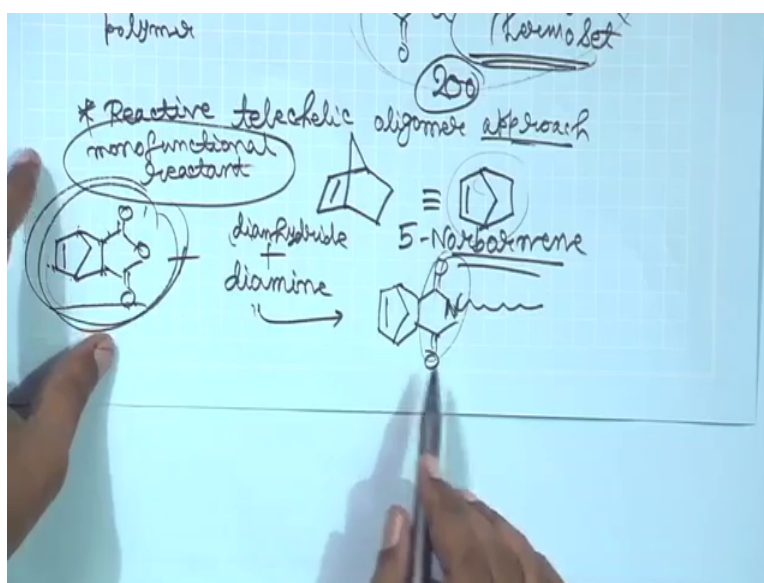 polymer
Thermoset
200
* Reactive telechelic oligomer approach
monofunctional
reactant
≡
5-Norbornene
O
O
O
+
dianhydride
+
diamine
O
N
O